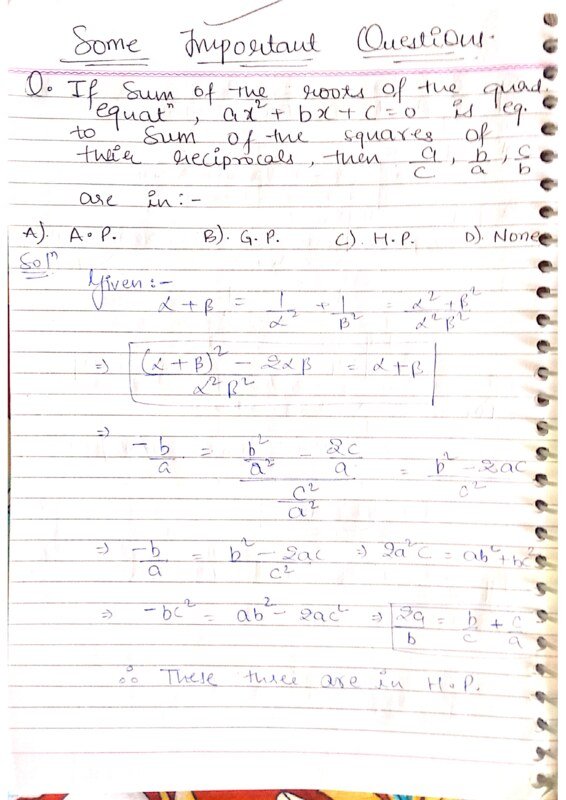 Some Important Questions.
Q. If Sum of the roots of the quad.
equatⁿ, ax² + bx + c = 0 is eq.
to Sum of the squares of
their reciprocals, then a/c, b/a, c/b
are in :-
A). A.P. B). G.P. C). H.P. D). None
Solⁿ
Given :-
α + β = 1/α² + 1/β² = α² + β²/α²β²
⇒ (α + β)² - 2αβ/α²β² = α + β
⇒ -b/a = b²/a² - 2c/a / c²/a² = b² - 2ac/c²
⇒ -b/a = b² - 2ac/c² ⇒ 2a²c = ab² + bc²
⇒ -bc² = ab² - 2ac² ⇒ 2a/b = b/c + c/a
∴ These three are in H.P.